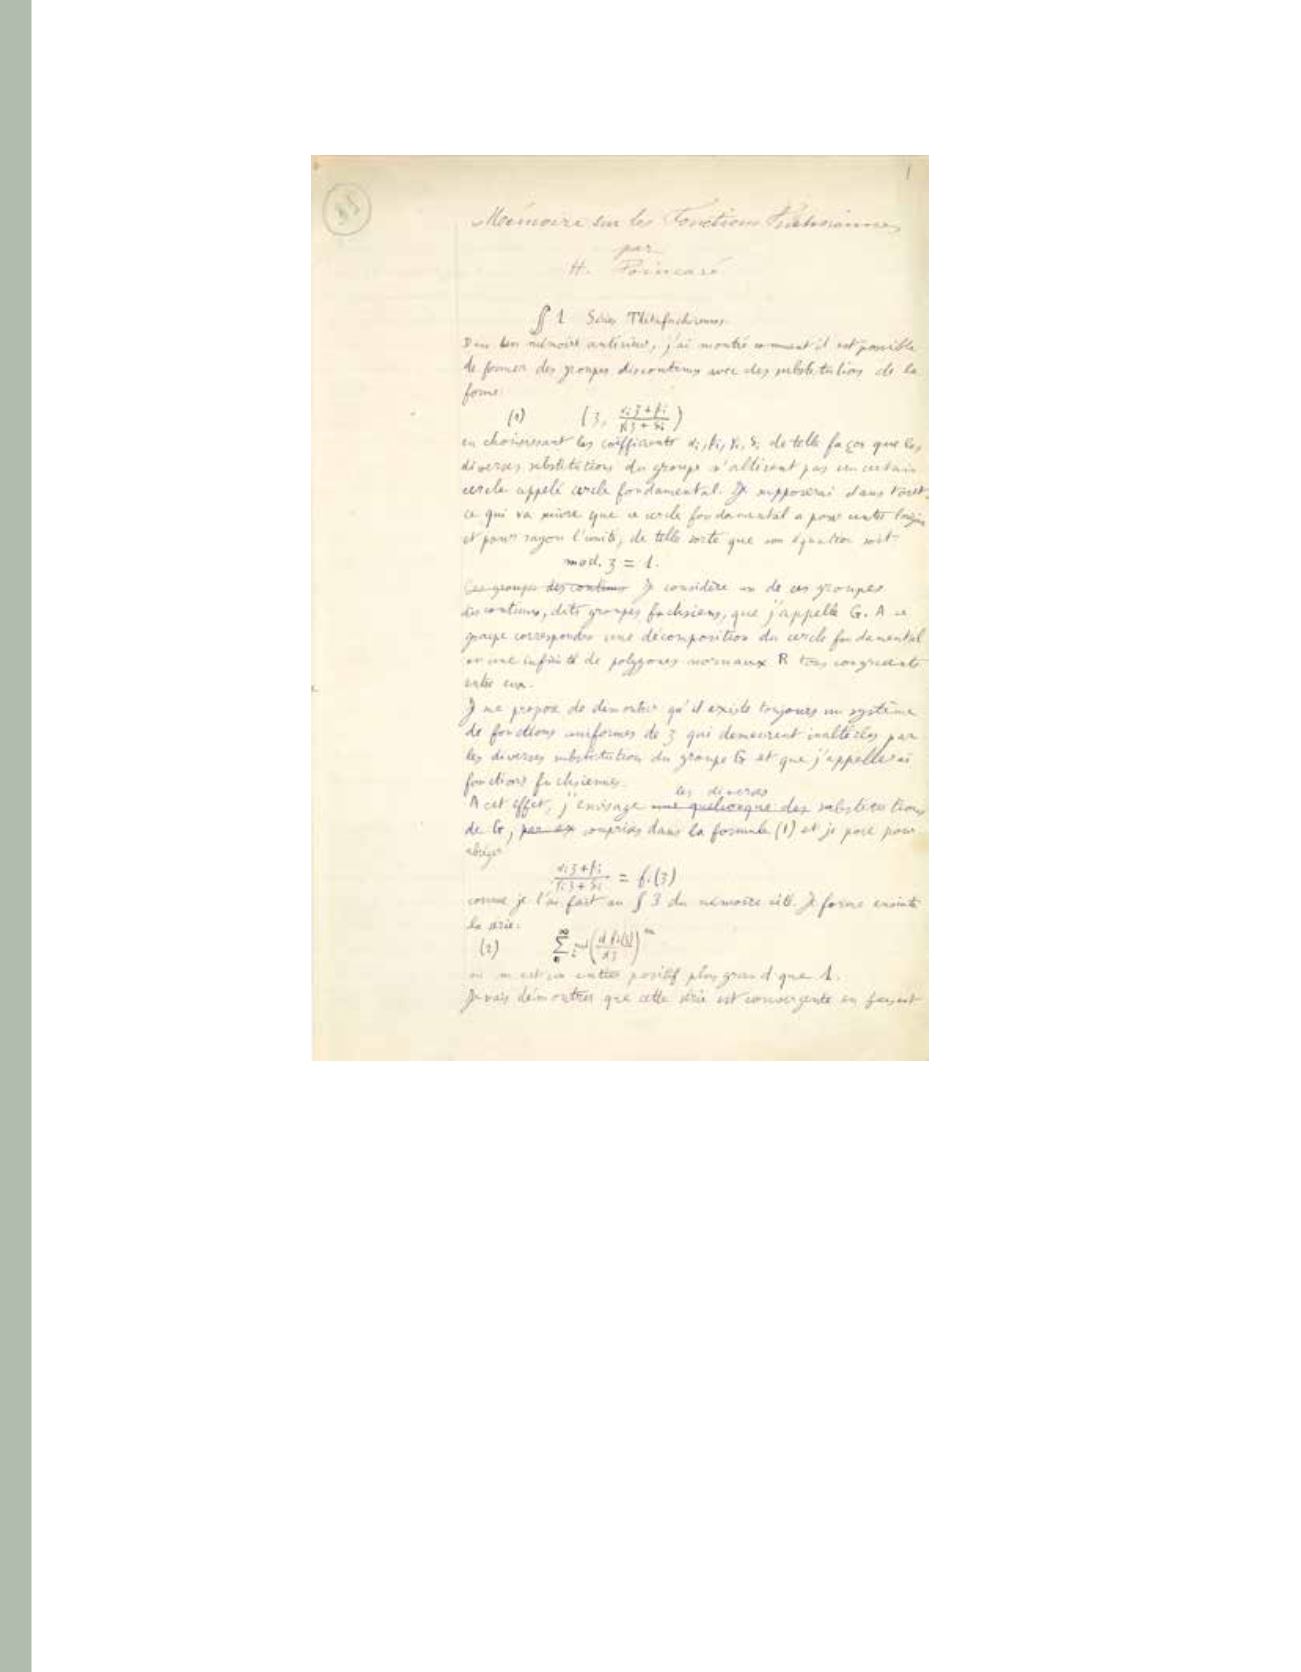 1
Mémoire sur les Fonctions Fuchsiennes
par
H. Poincaré
§ 1 Séries Thétafuchsiennes.
Dans un mémoire antérieur, j'ai montré comment il est possible
de former des groupes discontinus avec des substitutions de la
forme:
(1) (z, αiz+βi / γiz+δi)
en choisissant les coëfficients αi, βi, γi, δi de telle façon que les
diverses substitutions du groupe n'altèrent pas un certain
cercle appelé cercle fondamental. Je supposerai dans tout
ce qui va suivre que ce cercle fondamental a pour centre l'origine
et pour rayon l'unité, de telle sorte que son équation soit
mod. z = 1.
Ces groupes discontinus Je considère un de ces groupes
discontinus, dits groupes fuchsiens, que j'appelle G. A ce
groupe correspondra une décomposition du cercle fondamental
en une infinité de polygones normaux R tous congruents
entre eux.
Je me propose de démontrer qu'il existe toujours un système
de fonctions uniformes de z qui demeurent inaltérées par
les diverses substitutions du groupe G et que j'appellerai
fonctions fuchsiennes.
les diverses
A cet effet, j'envisage une quelconque des substitutions
de G, par ex comprises dans la formule (1) et je pose pour
abréger
αiz+βi / γiz+δi = fi(z)
comme je l'ai fait au § 3 du mémoire cité. Je forme ensuite
la série:
(2) ∑ mod (d fi(z) / dz)^m
où m est un entier positif plus grand que 1.
Je vais démontrer que cette série est convergente en faisant